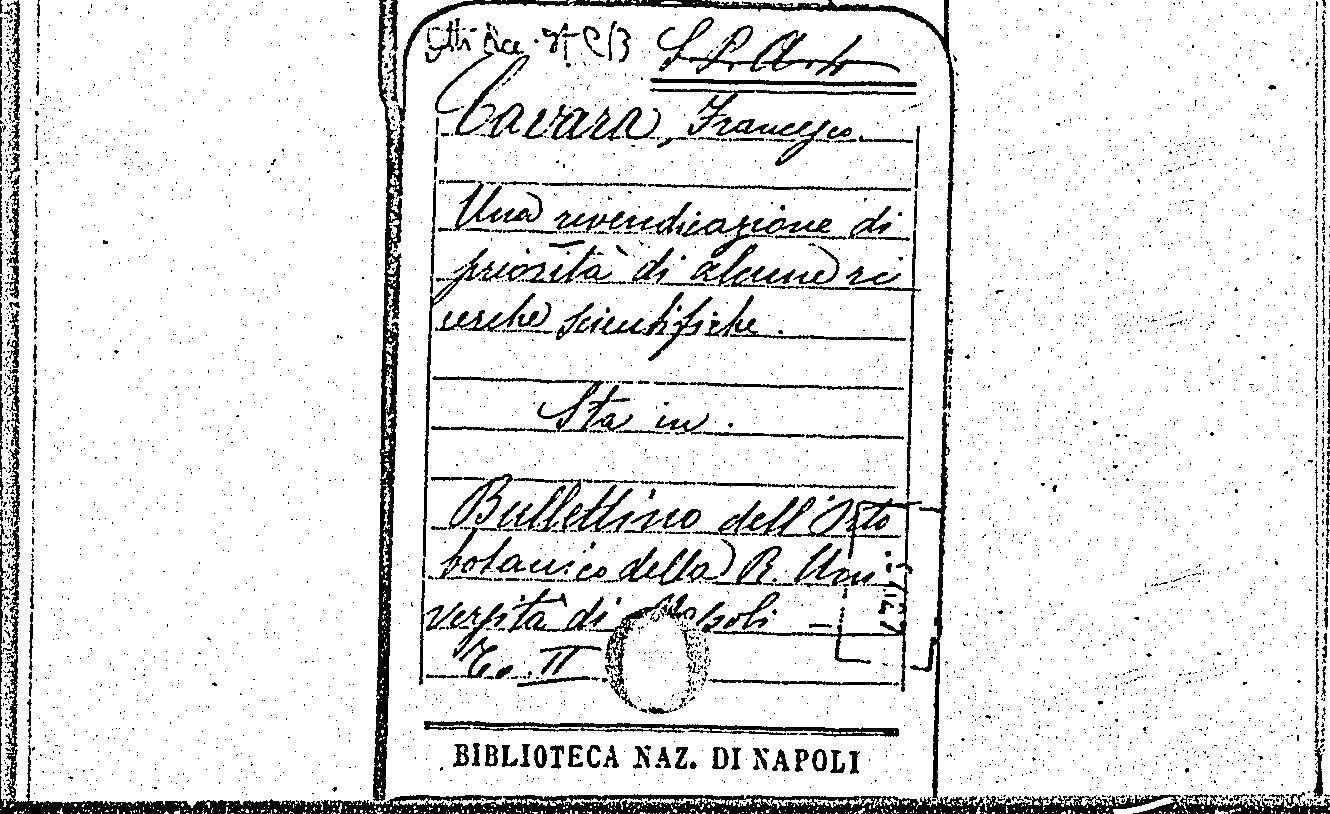 Atti Acc. C/3 S. P. Art.
Cavara, Francesco.
Una rivendicazione di
priorità di alcune ri
cerche scientifiche.
Sta in.
Bullettino dell'Orto
botanico della R. Uni
versità di Napoli —
To. II
BIBLIOTECA NAZ. DI NAPOLI